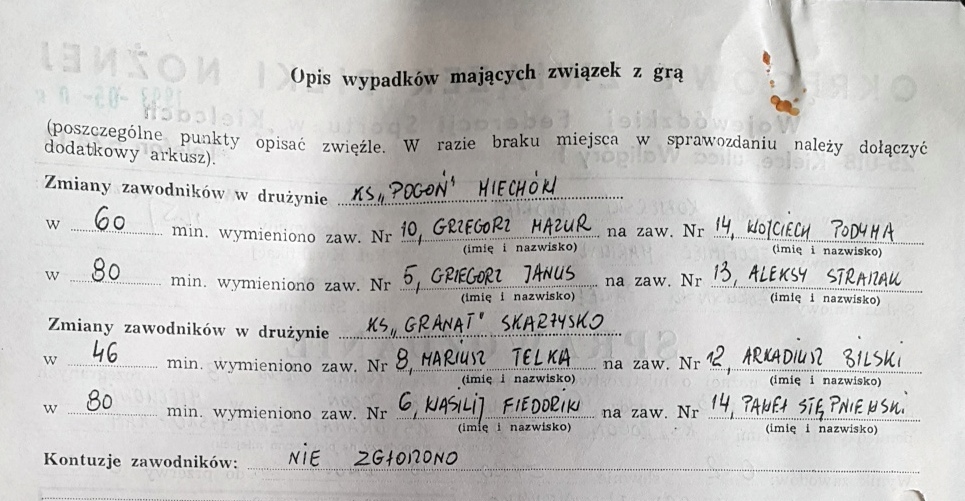 Opis wypadków mających związek z grą
(poszczególne punkty opisać zwięźle. W razie braku miejsca w sprawozdaniu należy dołączyć
dodatkowy arkusz).
Zmiany zawodników w drużynie KS „POGOŃ" MIECHÓW
w 60 min. wymieniono zaw. Nr 10, GRZEGORZ MAZUR na zaw. Nr 14, WOJCIECH PODYMA
(imię i nazwisko) (imię i nazwisko)
w 80 min. wymieniono zaw. Nr 5, GRZEGORZ JANUS na zaw. Nr 13, ALEKSY
(imię i nazwisko) (imię i nazwisko)
Zmiany zawodników w drużynie KS „GRANAT" SKARŻYSKO
w 46 min. wymieniono zaw. Nr 8, MARIUSZ TELKA na zaw. Nr 12, ARKADIUSZ BILSKI
(imię i nazwisko) (imię i nazwisko)
w 80 min. wymieniono zaw. Nr 6, WASILIJ FIEDORIW na zaw. Nr 14, PAWEŁ STĘPNIEWSKI
(imię i nazwisko) (imię i nazwisko)
Kontuzje zawodników: NIE ZGŁOSZONO